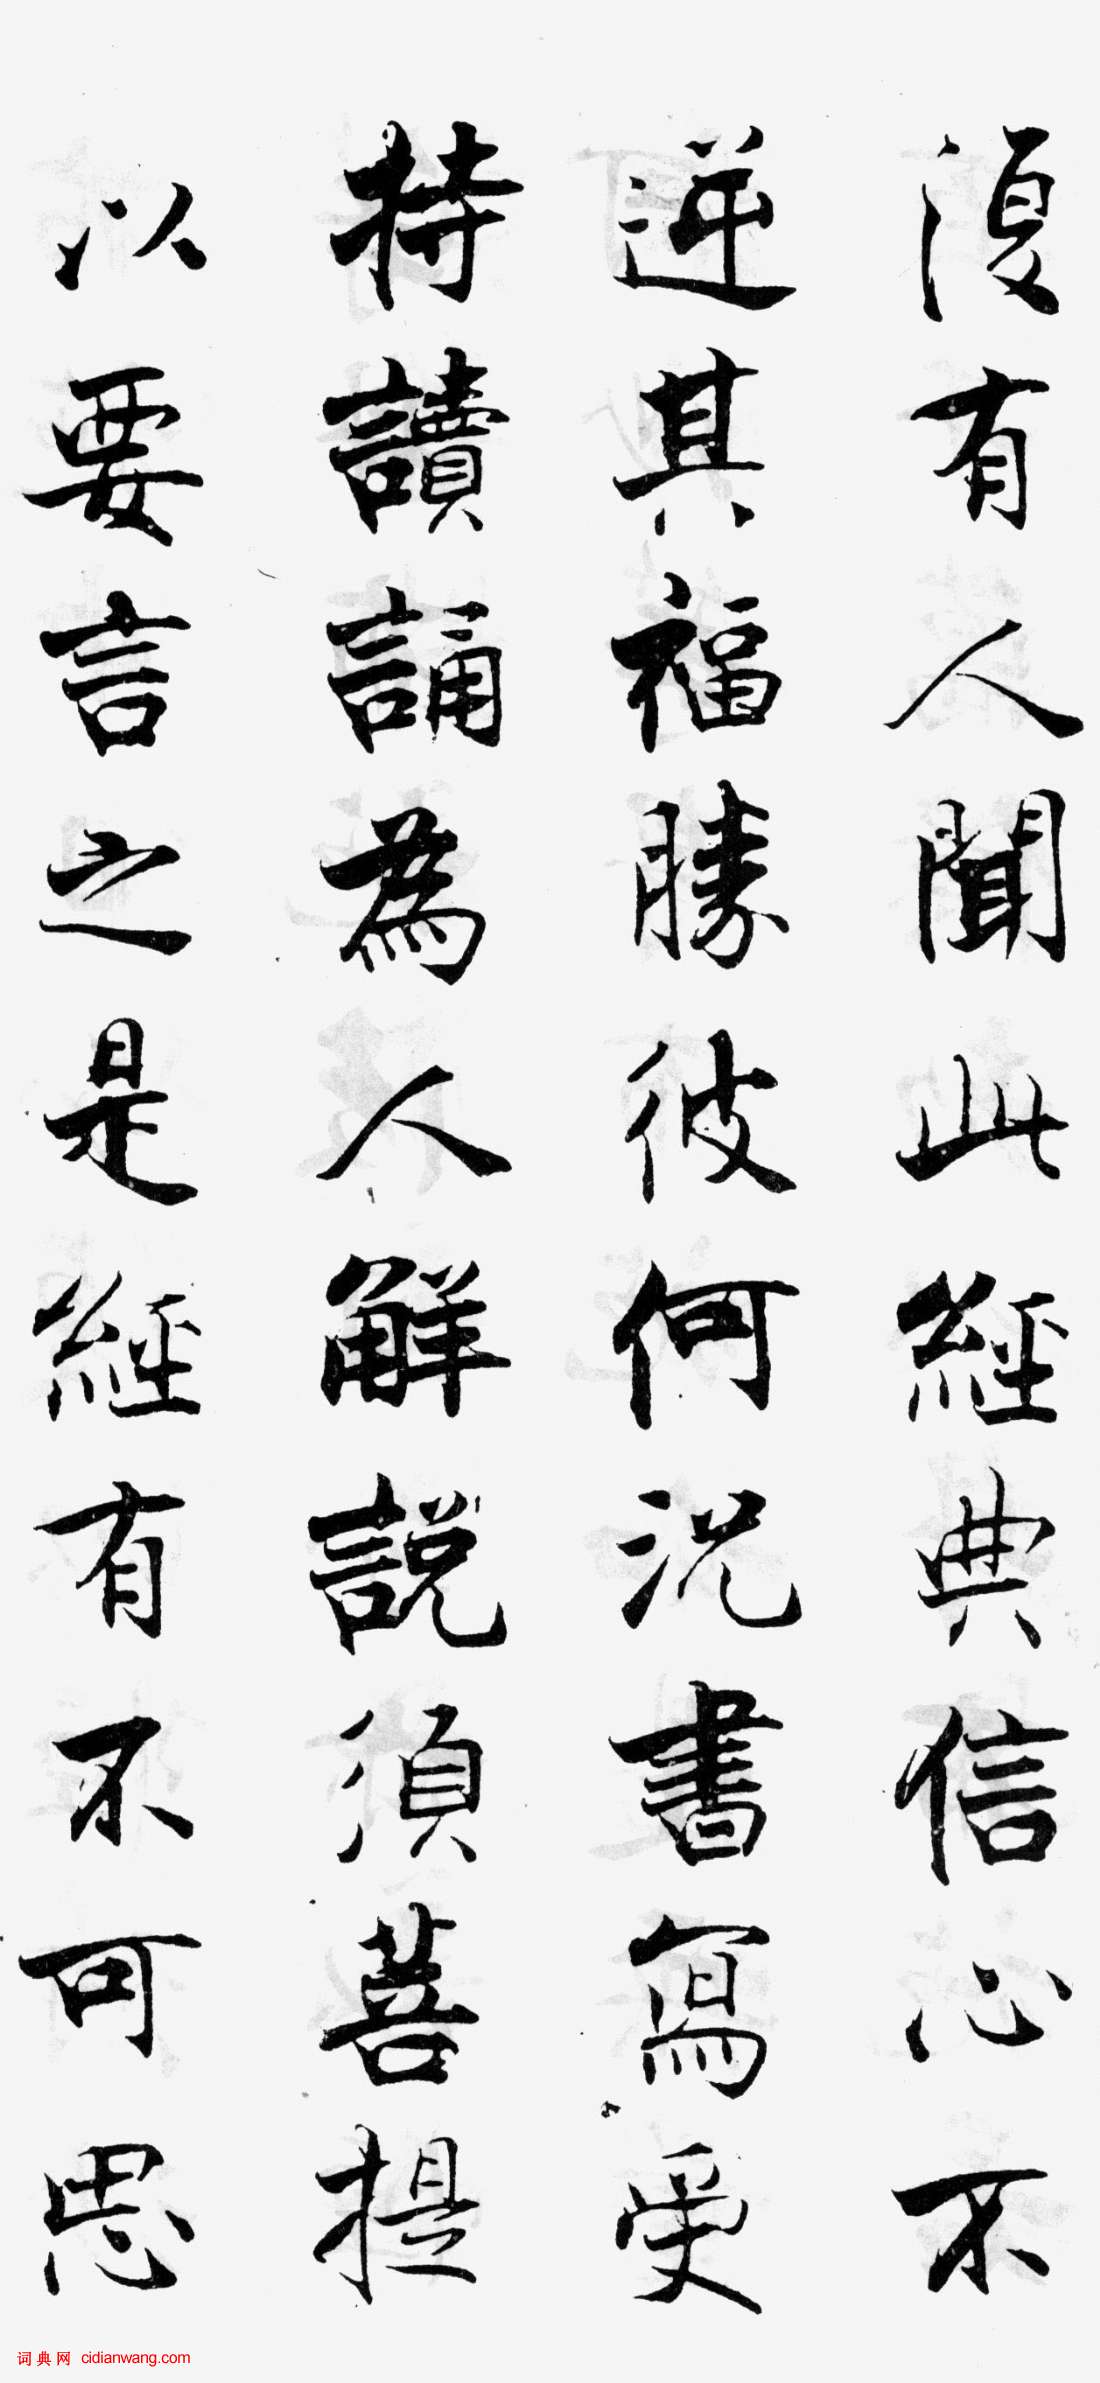 復有人聞此經典信心不
逆其福勝彼何況書寫受
持讀誦為人解說須菩提
以要言之是經有不可思
词典网 cidianwang.com